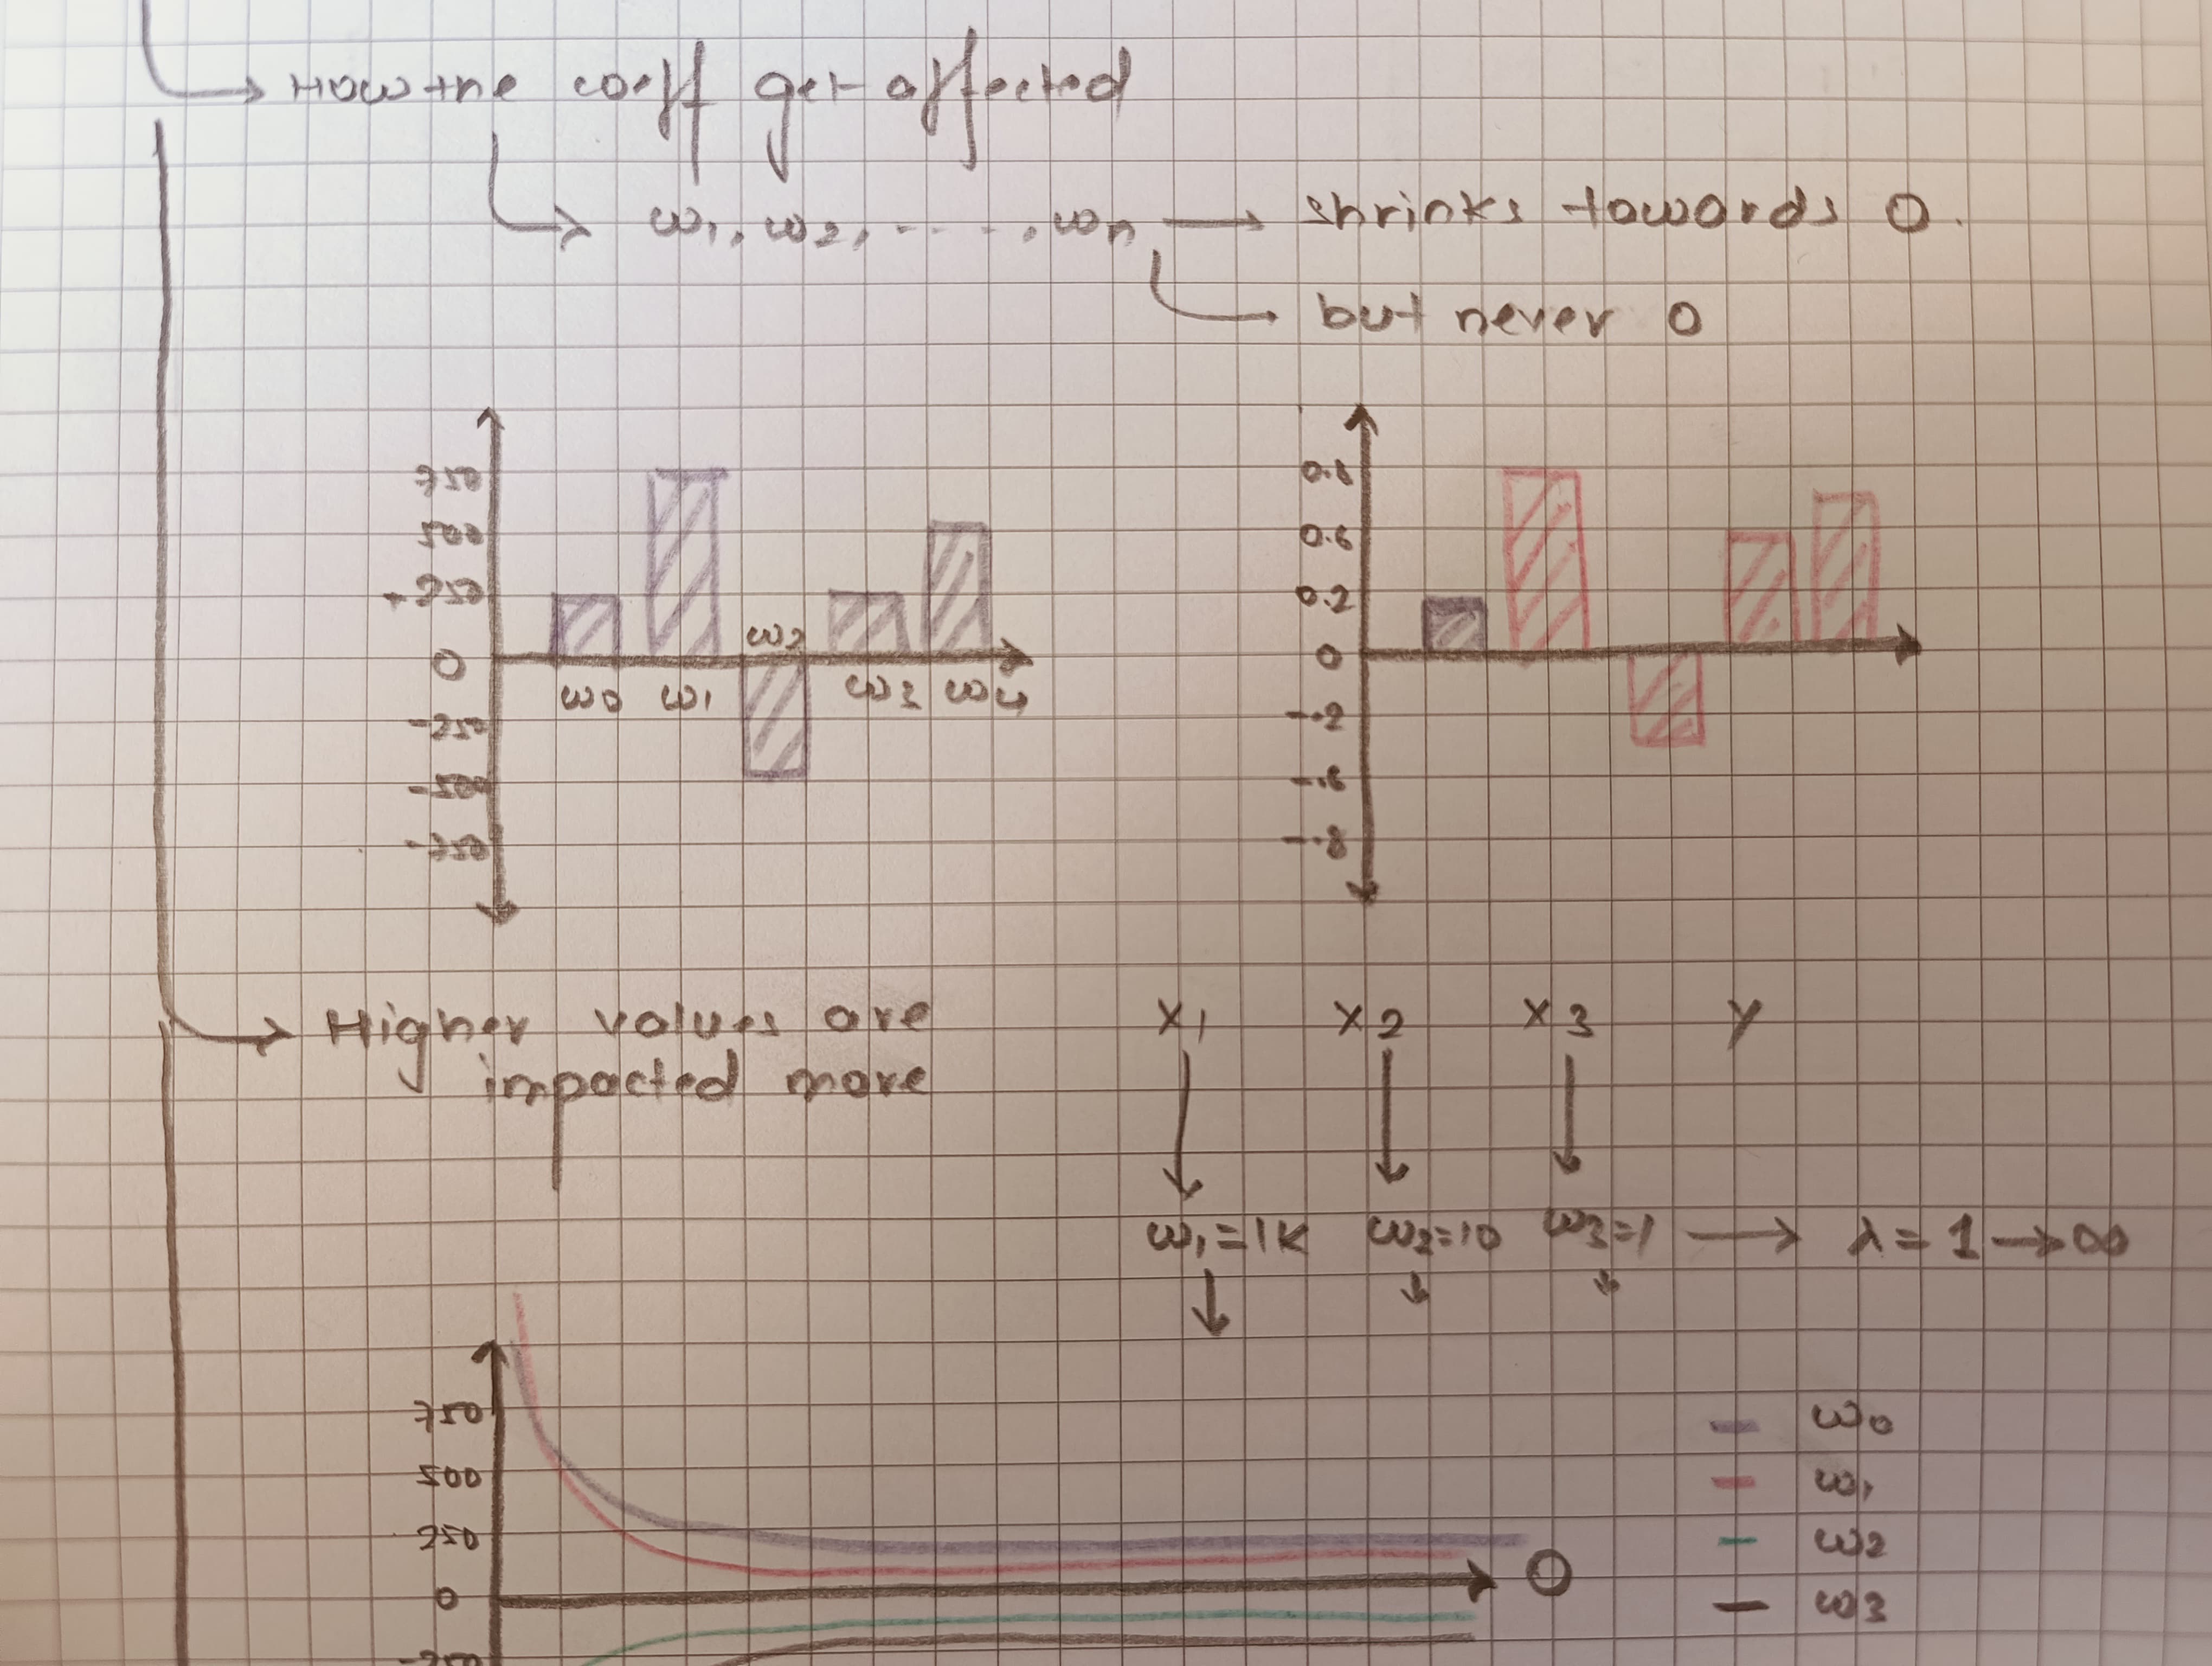 How the coeff get affected
w1, w2, - - - -, wn → shrinks towards 0.
but never 0
750
500
+250
0
-250
-500
-750
w0 w1 w2 w3 w4
0.8
0.6
0.2
0
-.2
-.6
-.8
Higher values are
impacted more
x1 x2 x3 y
w1=1K w2=10 w3=1 → λ=1→∞
750
500
250
0
-250
0
w0
w1
w2
w3